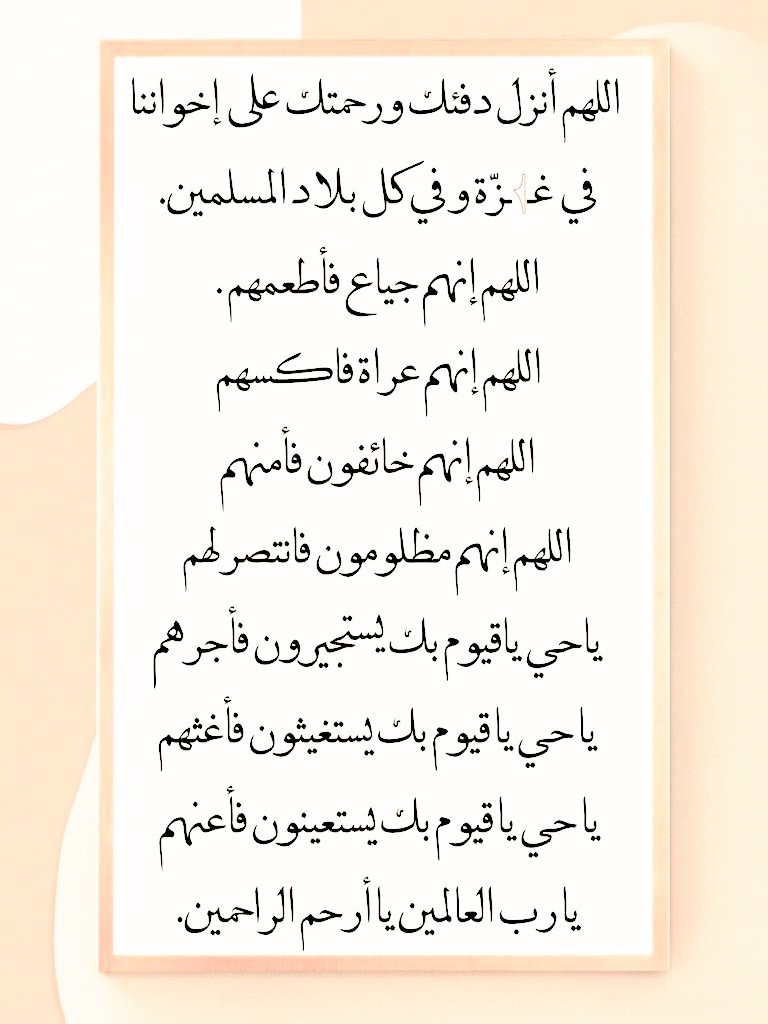 اللهم أنزل دفئك ورحمتك على إخواننا
في غـزّة وفي كل بلاد المسلمين.
اللهم إنهم جياع فأطعمهم.
اللهم إنهم عراة فاكسهم
اللهم إنهم خائفون فأمنهم
اللهم إنهم مظلومون فانتصر لهم
ياحي ياقيوم بك يستجيرون فأجرهم
ياحي ياقيوم بك يستغيثون فأغثهم
ياحي ياقيوم بك يستعينون فأعنهم
يارب العالمين يا أرحم الراحمين.